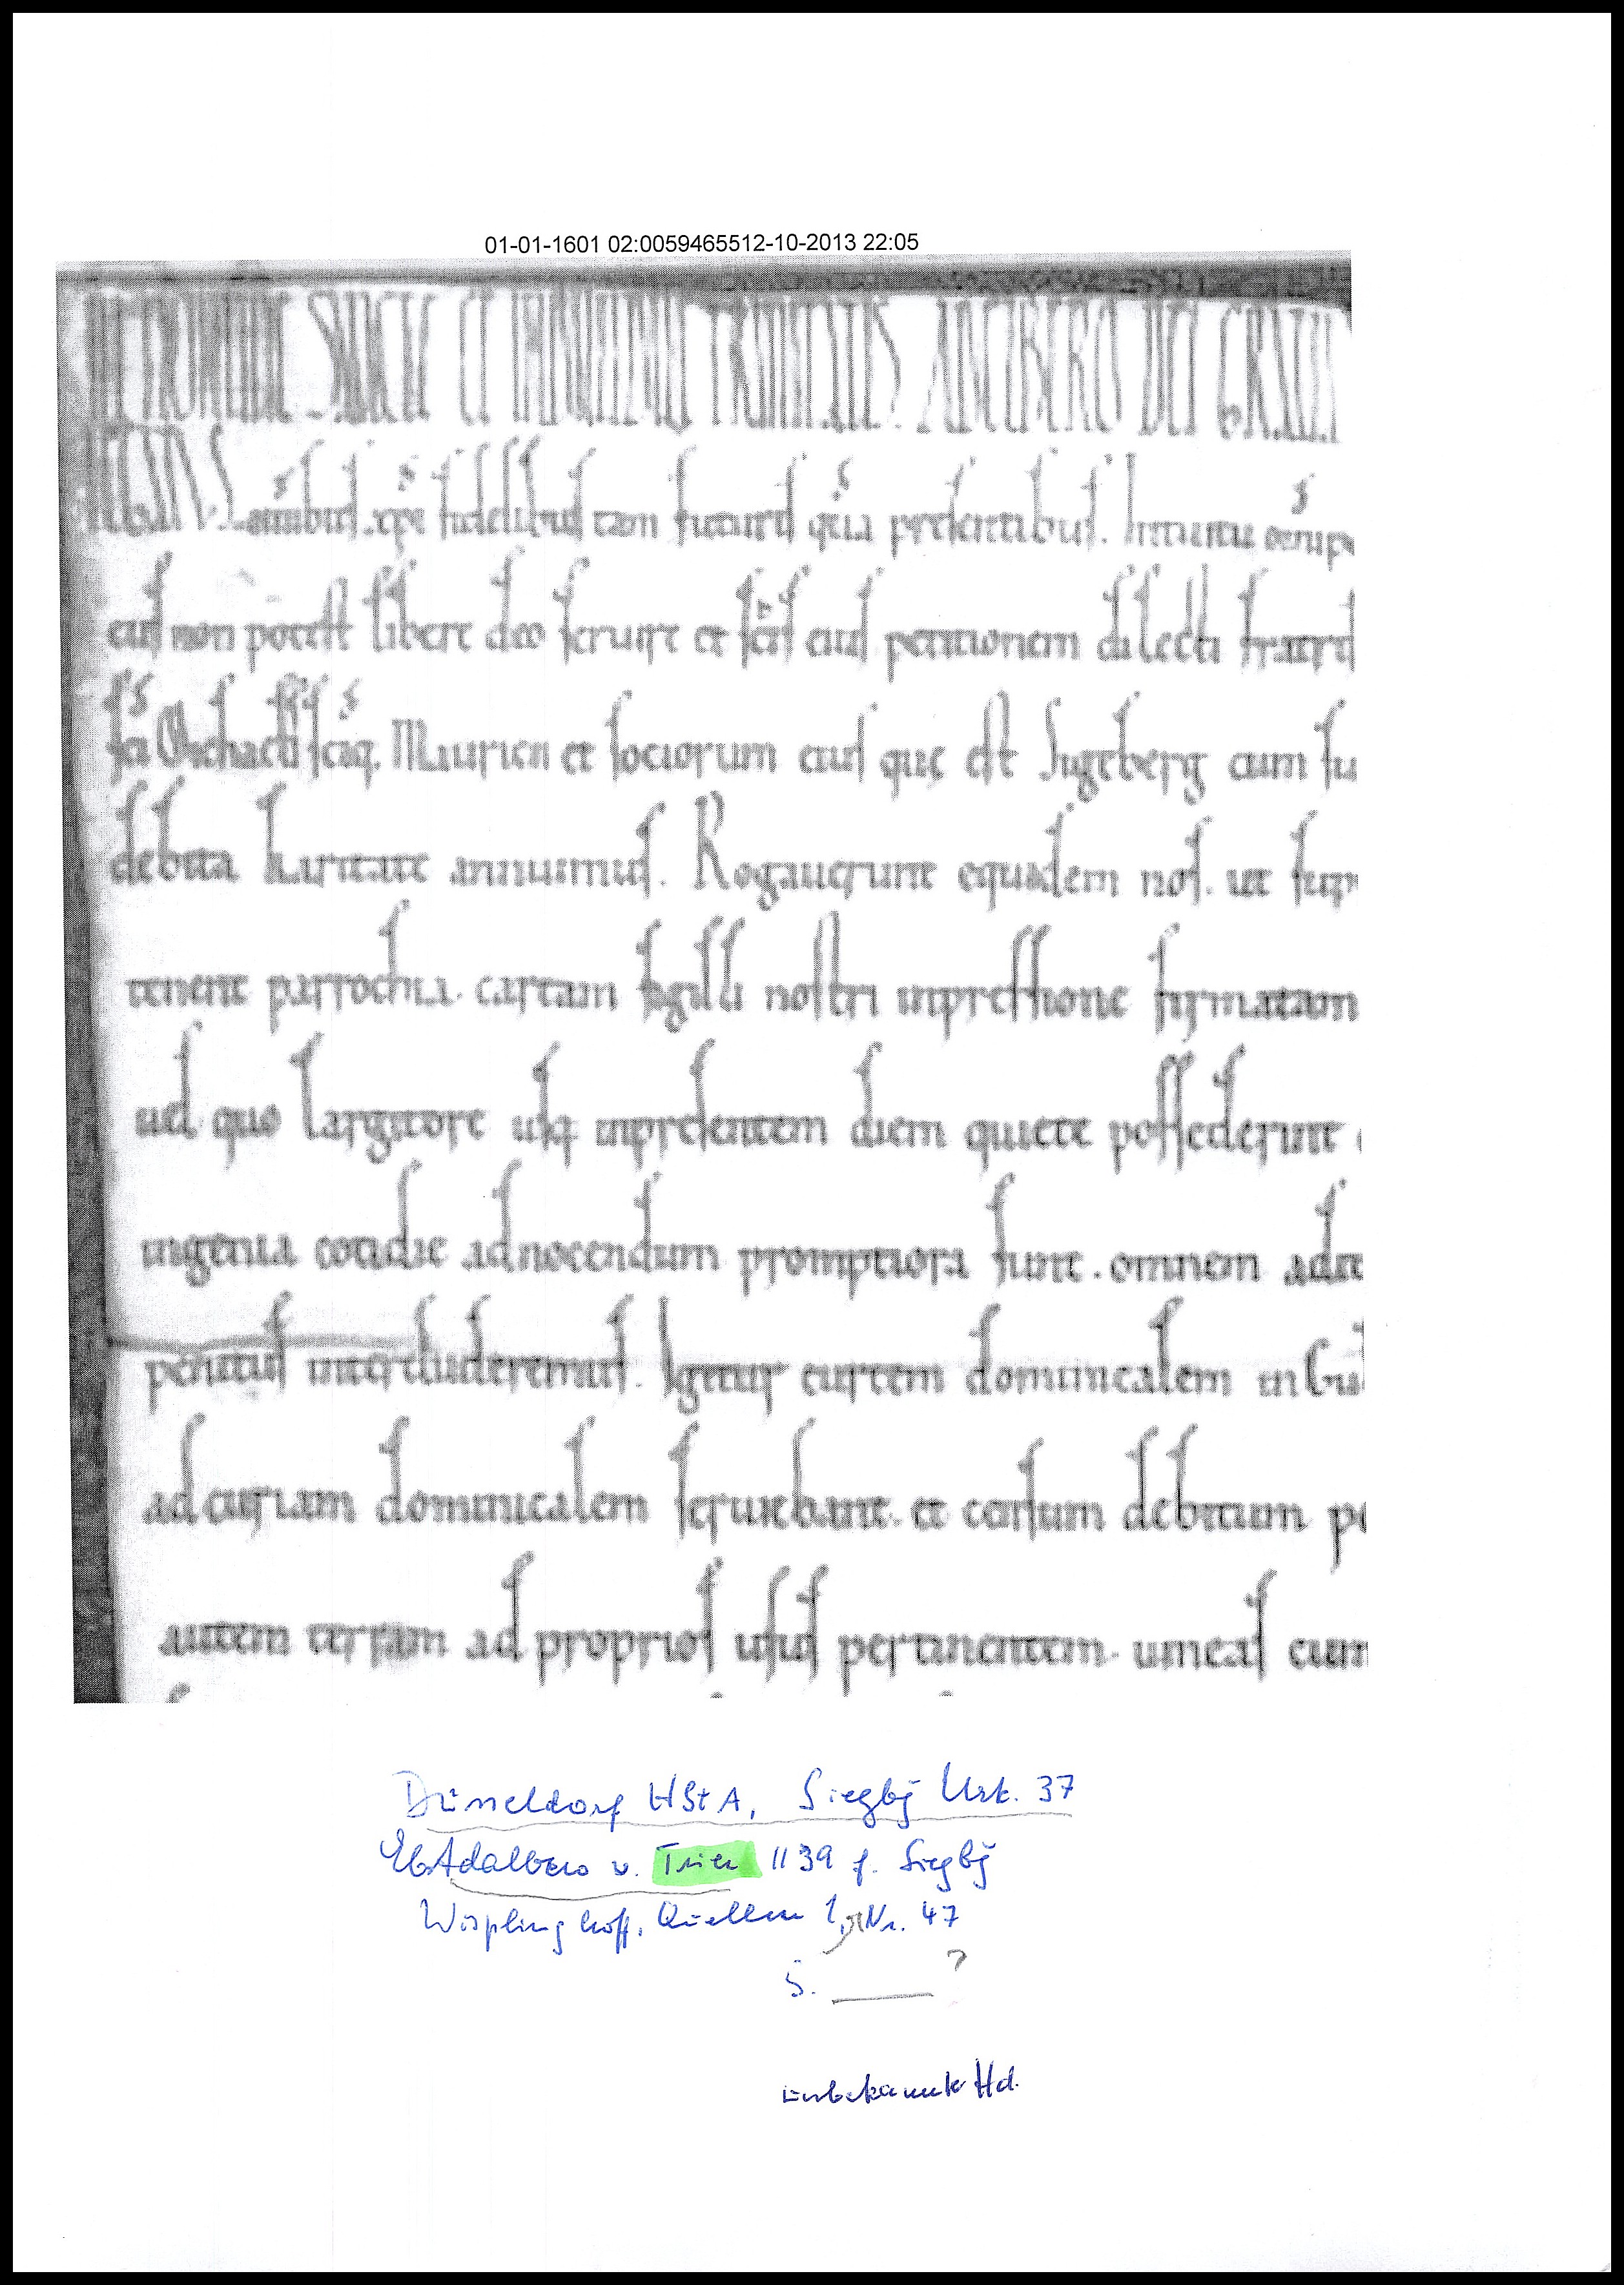 01-01-1601 02:0059465512-10-2013 22:05
IN NOMINE SANCTE ET INDIVIDUE TRINITATIS. ADELBERO DEI GRATIA
omnibus xpi fidelibus tam futuris quā presentibus. Intuitu
eius non potest libere deo seruire et scis eius petitionem dilecti fratris
sci Michaelis sciq. Mauricii et sociorum eius que est Sygeberg cum su
debita karitate annuimus. Rogauerunt equidem nos. ut sup
tenent parrochia. cartam sigilli nostri inpressione firmatam
uel quo largitore usq inpresentem diem quiete possederunt
ingenia cotidie adnocendum promptiora sunt. omnem adit
penitus intercluderemus. Igitur curtem dominicalem in Gu
ad curiam dominicalem seruiebant. et censum debitum pe
autem terram ad proprios usus pertinentem. uineas cum
Düsseldorf HStA, Siegbg Urk. 37
Eb Adalbero v. Trier 1139 f. Siegbg
Wisplinghoff, Quellen 1, Nr. 47
S. ____ ?
unbekannte Hd.